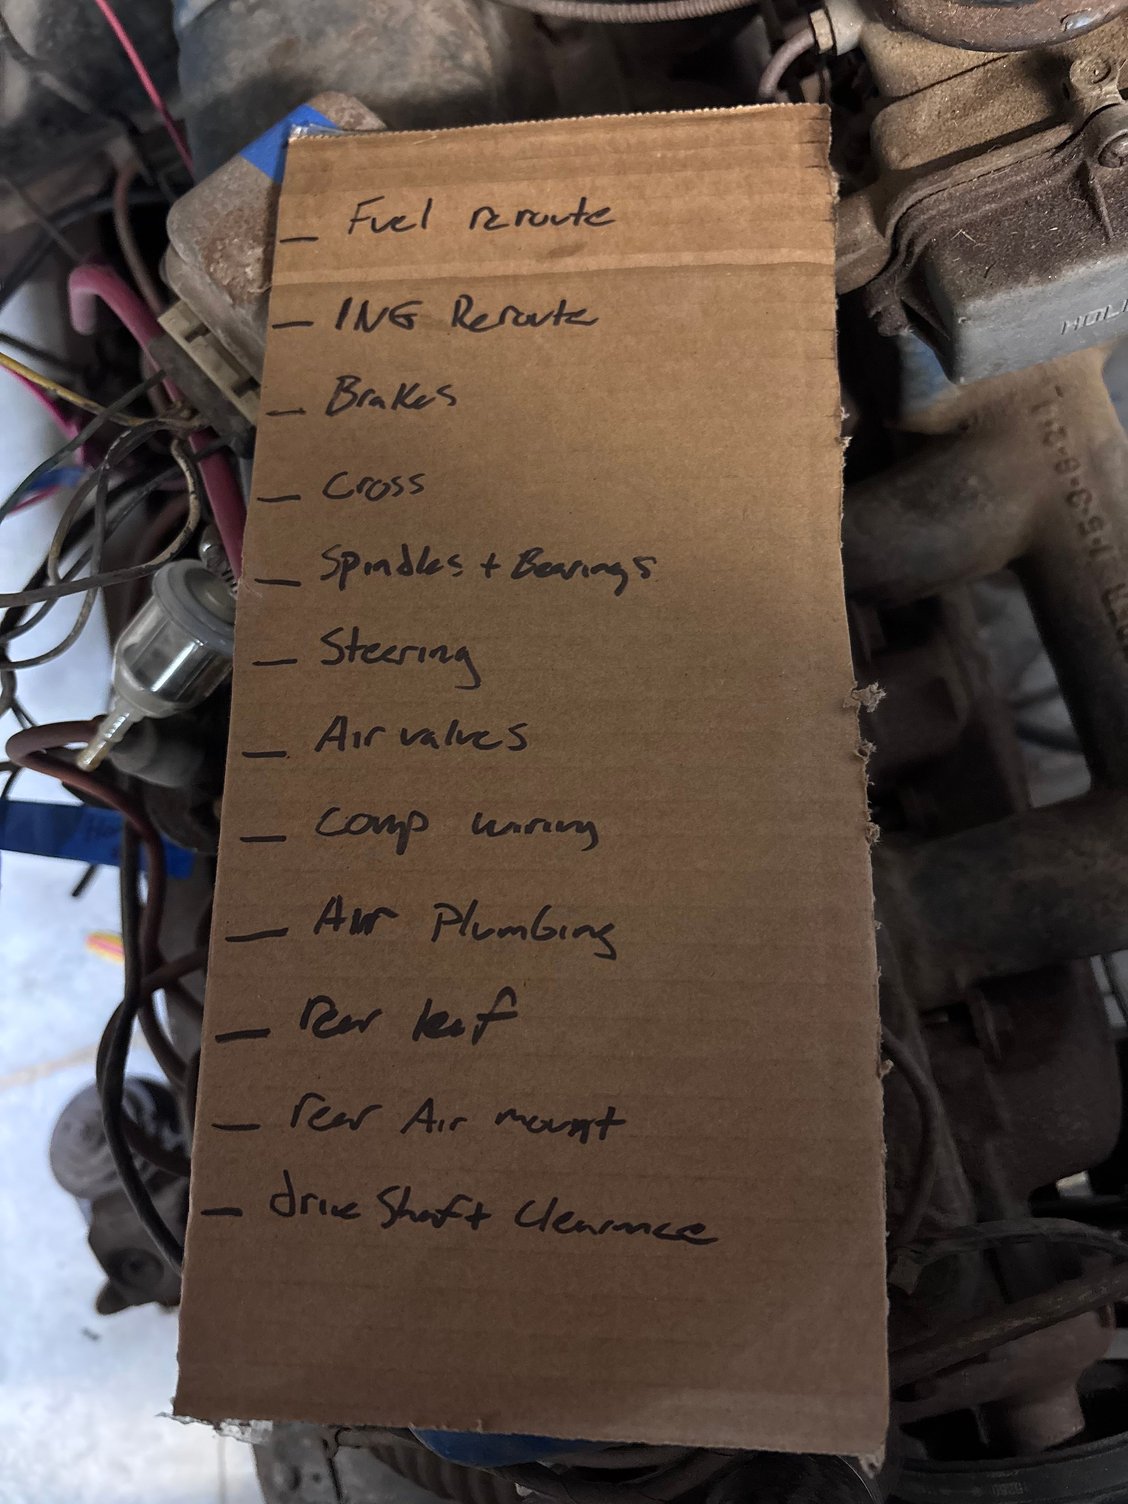 _ Fuel reroute
_ ING Reroute
_ Brakes
_ Cross
_ Spindles + Bearings
_ Steering
_ Air valves
_ Comp wiring
_ Air Plumbing
_ rear leaf
_ rear Air mount
_ drive Shaft Clearance